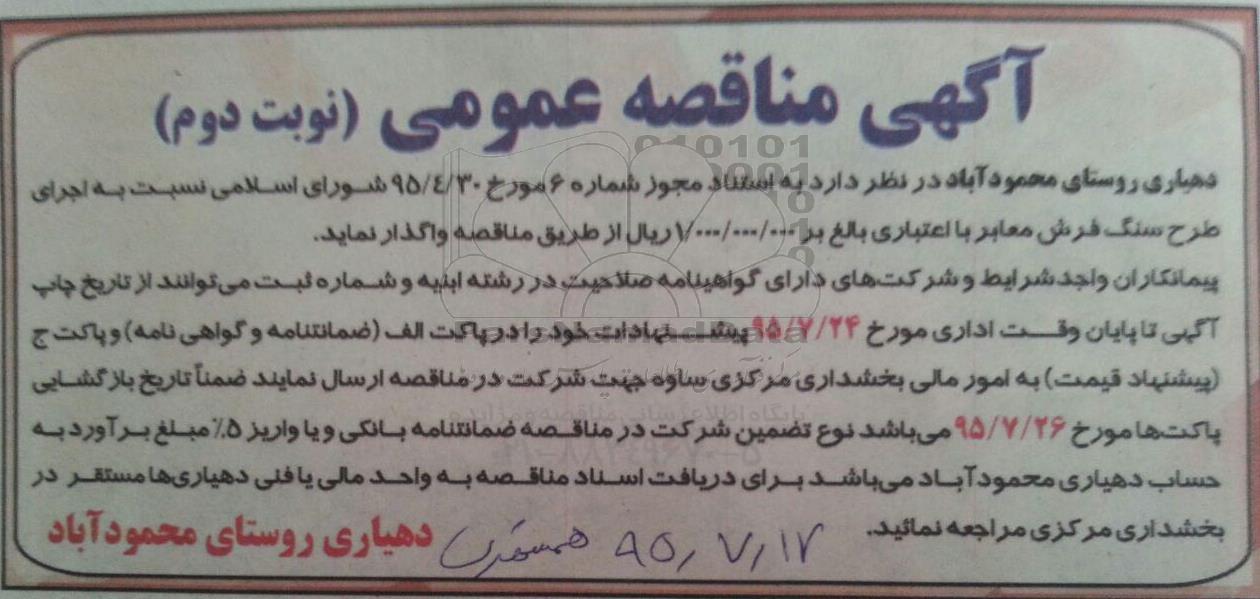 آگهی مناقصه عمومی (نوبت دوم)
دهیاری روستای محمودآباد در نظر دارد به استناد مجوز شماره ۶ مورخ ۹۵/۴/۳۰ شورای اسلامی نسبت به اجرای
طرح سنگ فرش معابر با اعتباری بالغ بر ۱/۰۰۰/۰۰۰/۰۰۰ ریال از طریق مناقصه واگذار نماید.
پیمانکاران واجد شرایط و شرکت‌های دارای گواهینامه صلاحیت در رشته ابنیه و شماره ثبت می‌توانند از تاریخ چاپ
آگهی تا پایان وقت اداری مورخ ۹۵/۷/۲۴ پیشنهادات خود را در پاکت الف (ضمانتنامه و گواهی نامه) و پاکت ج
(پیشنهاد قیمت) به امور مالی بخشداری مرکزی ساوه جهت شرکت در مناقصه ارسال نمایند ضمناً تاریخ بازگشایی
پاکت‌ها مورخ ۹۵/۷/۲۶ می‌باشد نوع تضمین شرکت در مناقصه ضمانتنامه بانکی و یا واریز ۵٪ مبلغ برآورد به
حساب دهیاری محمودآباد می‌باشد برای دریافت اسناد مناقصه به واحد مالی یا فنی دهیاری‌ها مستقر در
بخشداری مرکزی مراجعه نمائید.
۹۵/۷/۱۷ همشهری
دهیاری روستای محمودآباد